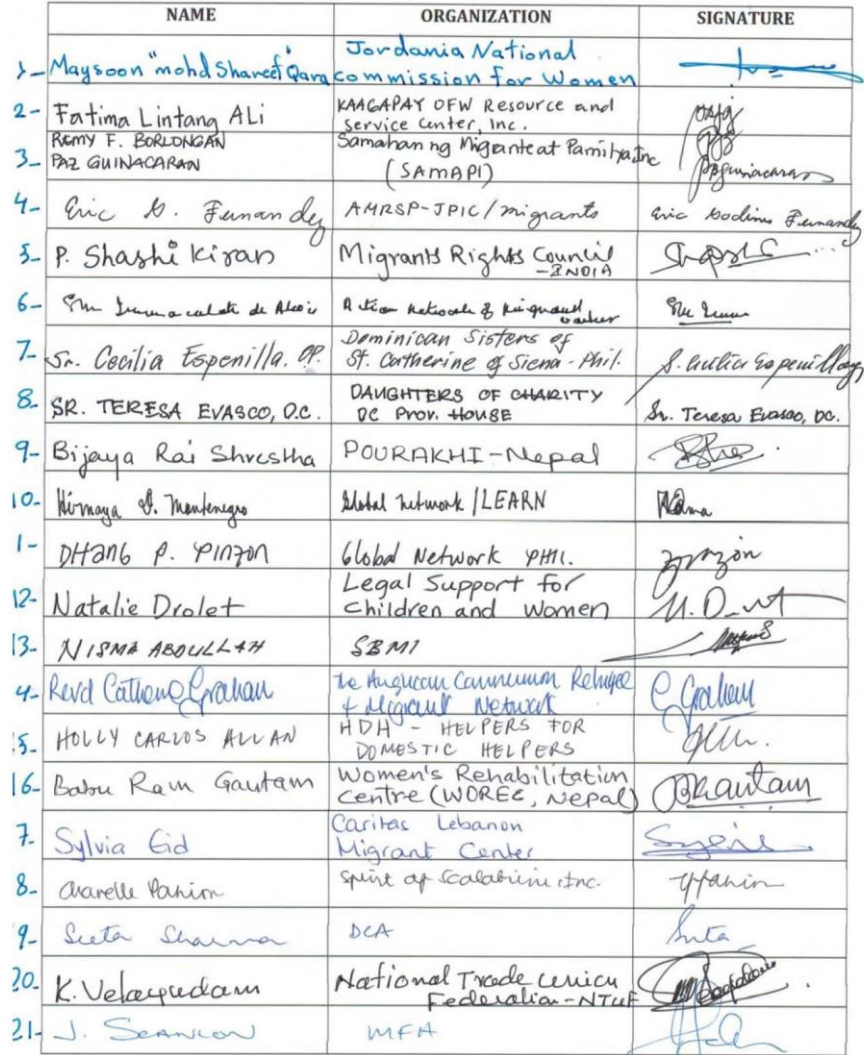 NAME ORGANIZATION SIGNATURE
1- Maysoon "mohd Shareef Qara Jordania National
commission for Women
2- Fatima Lintang ALi KAAGAPAY OFW Resource and
service center, Inc.
3- REMY F. BORLONGAN Samahan ng Migrante at Pamilya Inc
PAZ GUINACARAN (SAMAPI)
4- Eric G. Fernandez AMRSP-JPIC/migrants Eric Fernandez
5- P. Shashi Kiran Migrants Rights Council
-INDIA
6- Action Network of
7- Sr. Cecilia Espenilla. OP. Dominican Sisters of
St. Catherine of Siena-Phil. S. Cecilia Espenilla op
8- SR. TERESA EVASCO, D.C. DAUGHTERS OF CHARITY
DC Prov. HOUSE Sr. Teresa Evasco, DC.
9- Bijaya Rai Shrestha POURAKHI-Nepal
10- Montenegro Global Network/LEARN
1- DHANG P. PINZON Global Network PHIL. pinzon
12- Natalie Drolet Legal Support for
Children and Women
13- NISMA ABDULLAH SBMI
4- Revd Catherine Graham The Anglican Communion Refugee
+ Migrant Network C Graham
5- HOLLY CARLOS ALLAN HDH - HELPERS FOR
DOMESTIC HELPERS
16- Babu Ram Gautam Women's Rehabilitation
Centre (WOREC, Nepal) Gautam
7- Sylvia Eid Caritas Lebanon
Migrant Center
8- Pahim spirit of Scalabrini Inc.
9- Seeta Sharma DCA
20- K. Velayudam National Trade union
Federation-NTUF
21- J. SCANLON MFA